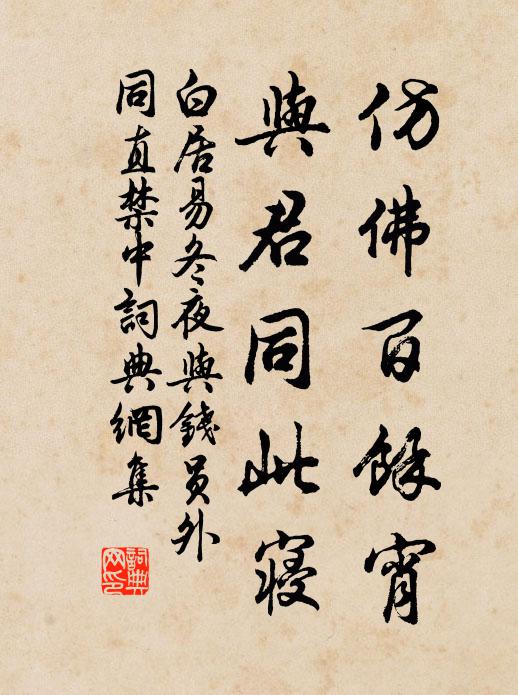 仿佛百餘宵
與君同此寢
白居易冬夜與錢員外
同直禁中詞典網集
詞典网印